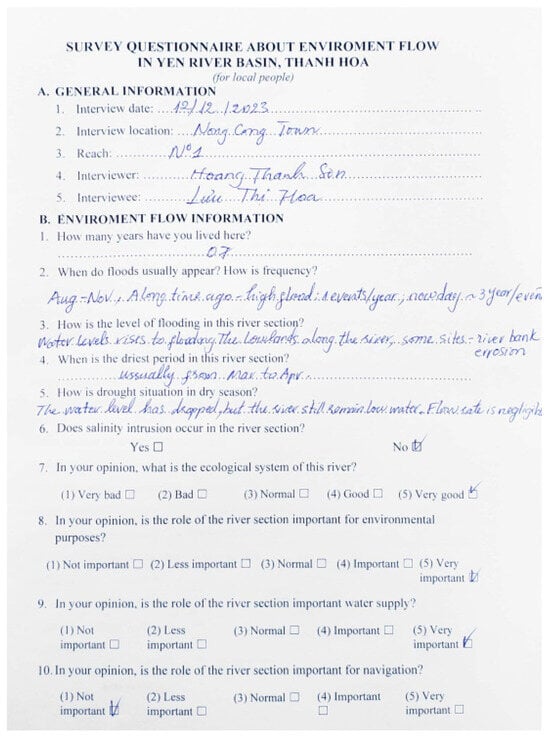 SURVEY QUESTIONNAIRE ABOUT ENVIROMENT FLOW
IN YEN RIVER BASIN, THANH HOA
(for local people)
A. GENERAL INFORMATION
1. Interview date: 12/12/2023
2. Interview location: Nong Cong Town
3. Reach: Nº1
4. Interviewer: Hoang Thanh Son
5. Interviewee: Lưu Thi Hoa
B. ENVIROMENT FLOW INFORMATION
1. How many years have you lived here?
07
2. When do floods usually appear? How is frequency?
Aug-Nov. A long time ago - high flood: events/year, nowday ~ 3 year/even
3. How is the level of flooding in this river section?
Water levels rises to flooding The lowlands along the river, some sites - river bank
erosion
4. When is the driest period in this river section?
usually from Mar to Apr.
5. How is drought situation in dry season?
The water level has dropped, but the river still remain low water. Flow rate is negligib
6. Does salinity intrusion occur in the river section?
Yes ☐ No ☑
7. In your opinion, what is the ecological system of this river?
(1) Very bad ☐ (2) Bad ☐ (3) Normal ☐ (4) Good ☐ (5) Very good ☑
8. In your opinion, is the role of the river section important for environmental
purposes?
(1) Not important ☐ (2) Less important ☐ (3) Normal ☐ (4) Important ☐ (5) Very
important ☑
9. In your opinion, is the role of the river section important water supply?
(1) Not (2) Less (3) Normal ☐ (4) Important ☐ (5) Very
important ☐ important ☐ important ☑
10. In your opinion, is the role of the river section important for navigation?
(1) Not (2) Less (3) Normal ☐ (4) Important (5) Very
important ☑ important ☐ ☐ important ☐